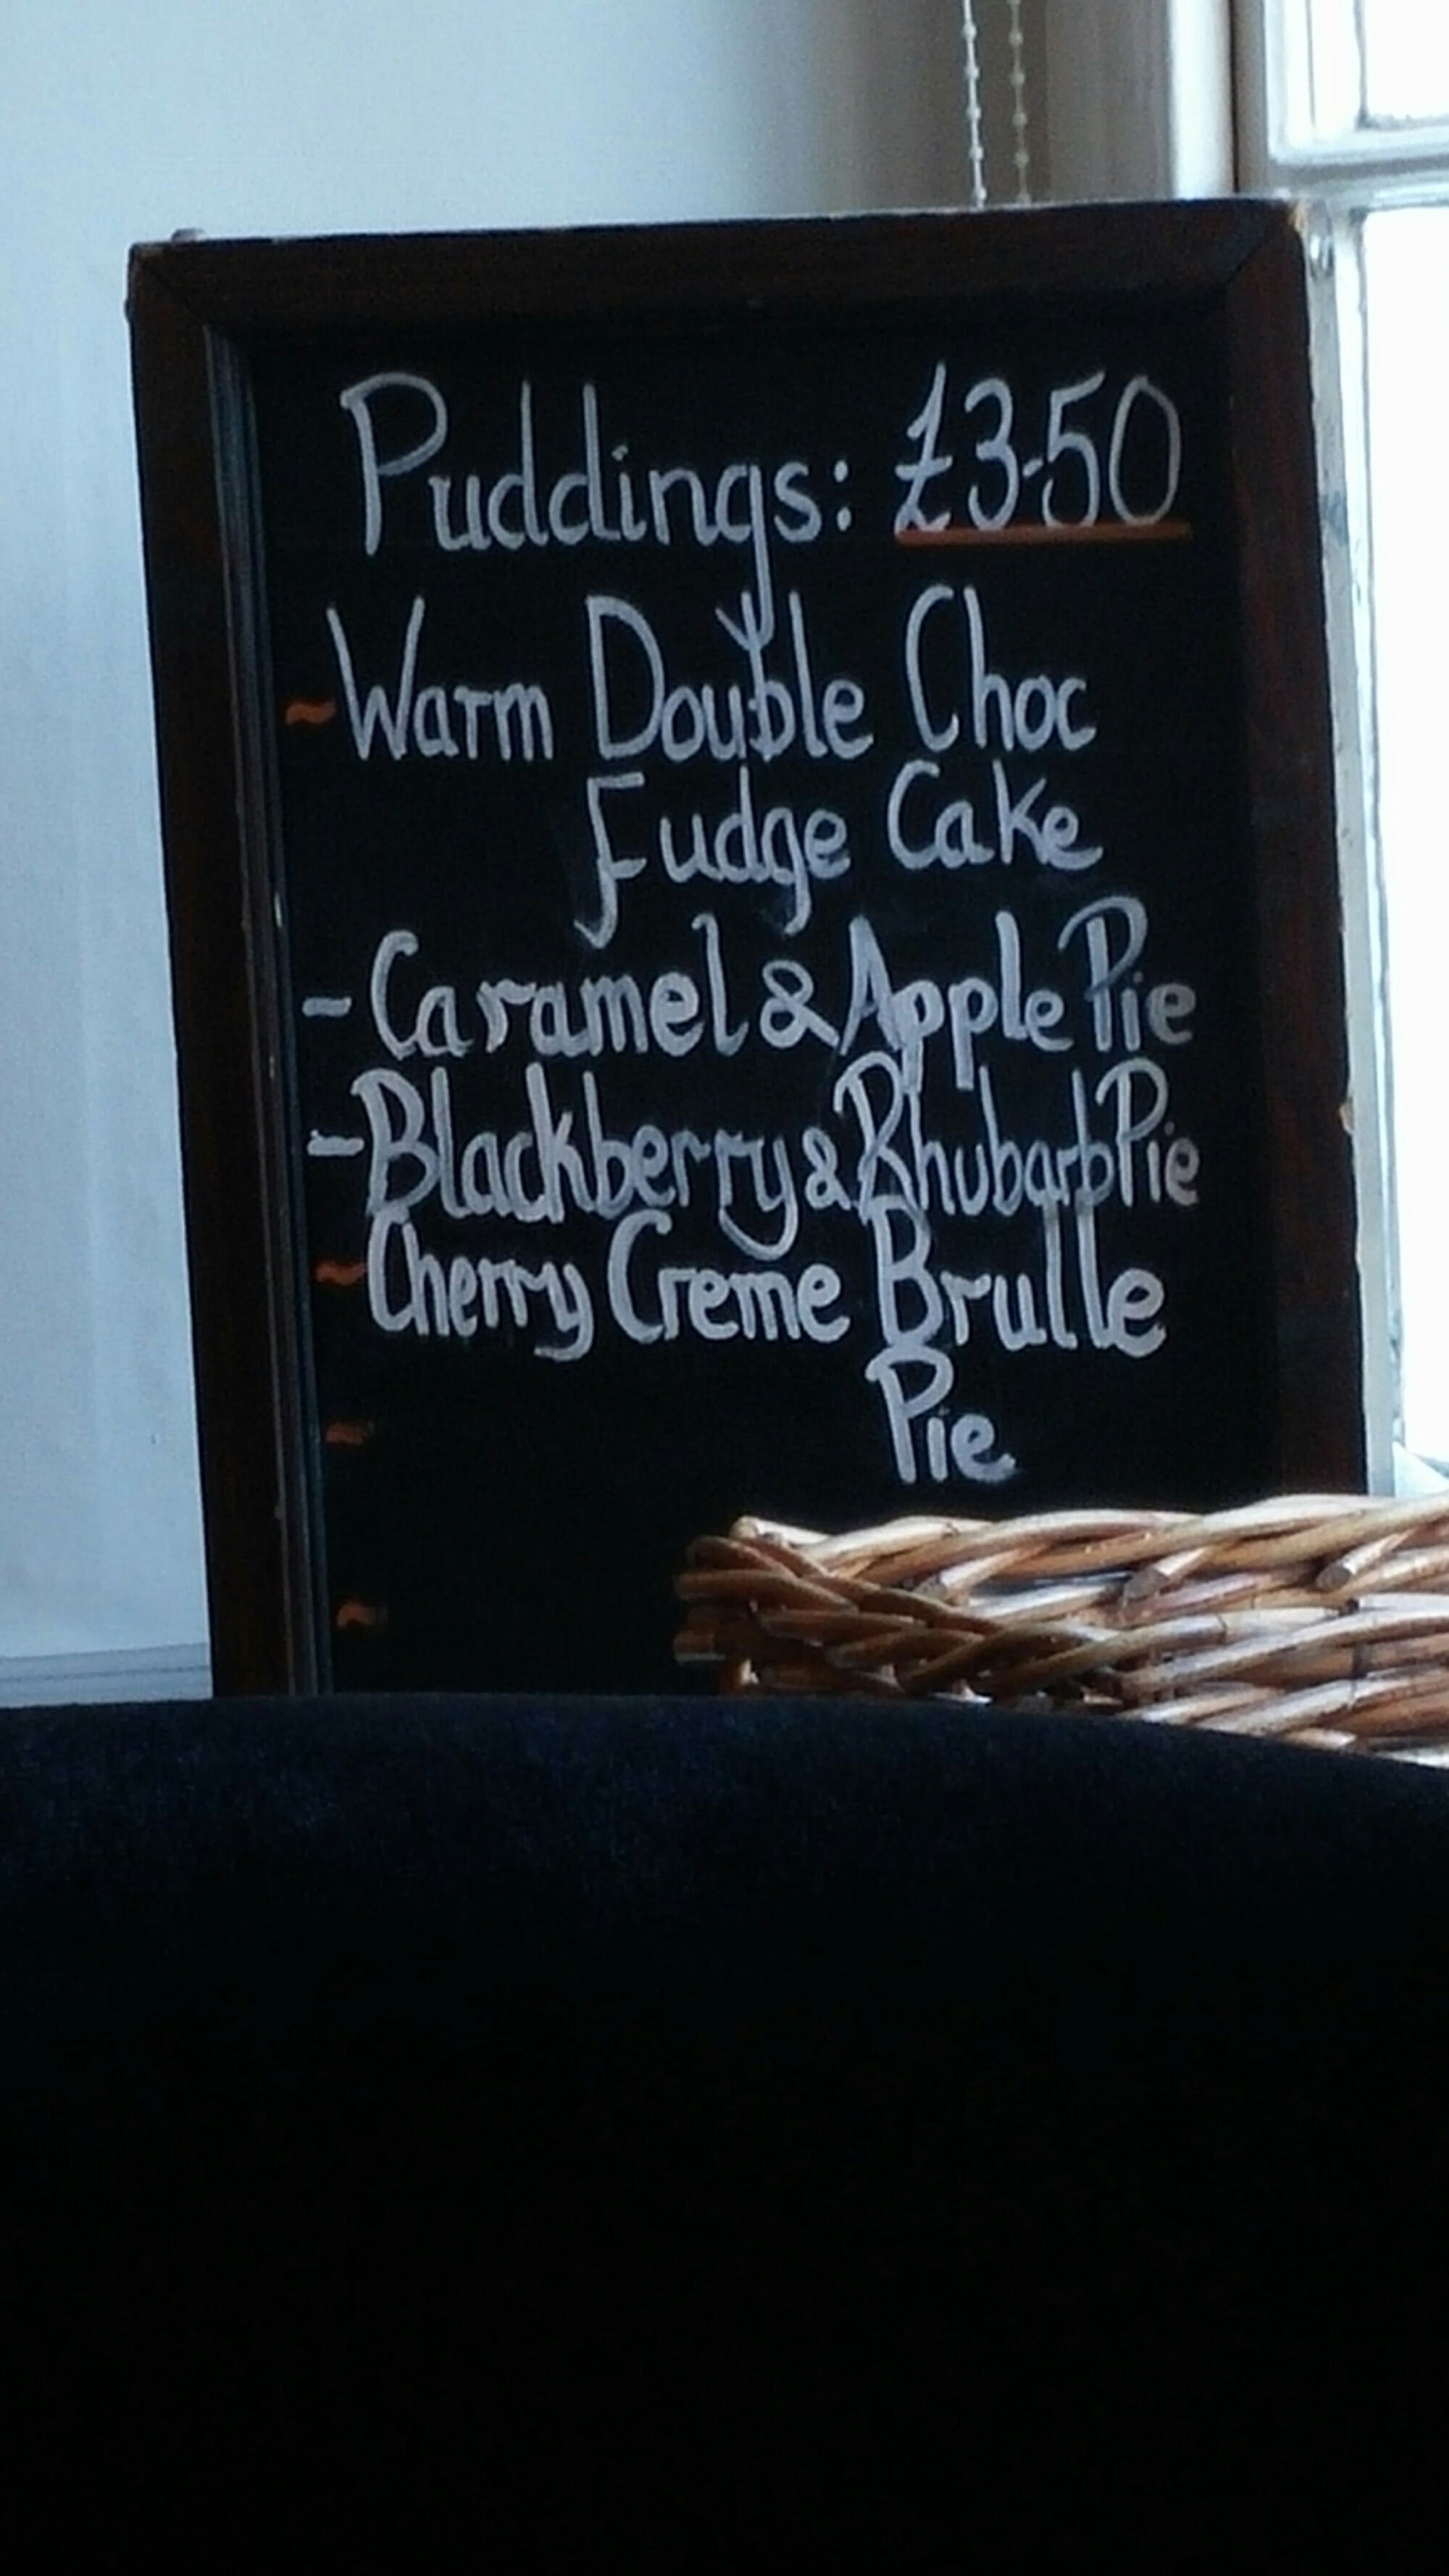 Puddings: £3-50
~Warm Double Choc
Fudge Cake
-Caramel & Apple Pie
-Blackberry & Rhubarb Pie
~Cherry Creme Brulle
Pie
~
~